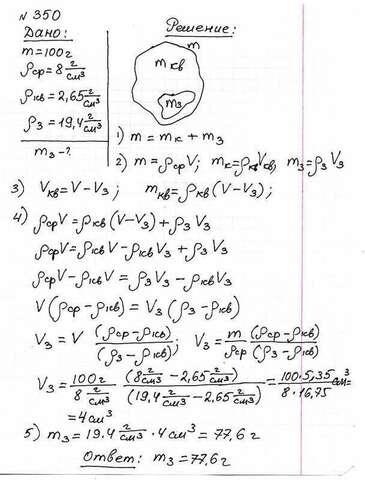 N 350
Дано:
m=100г
ρср=8 г/см³
ρкв=2,65 г/см³
ρз=19,4 г/см³
mз-?
Решение:
m
mкв
mз
1) m = mк + mз
2) m=ρсрV; mк=ρкVкв; mз=ρзVз
3) Vкв=V-Vз; mкв=ρкв(V-Vз);
4) ρсрV=ρкв(V-Vз)+ρзVз
ρсрV=ρквV-ρквVз+ρзVз
ρсрV-ρквV=ρзVз-ρквVз
V(ρср-ρкв)=Vз(ρз-ρкв)
Vз=V (ρср-ρкв)/(ρз-ρкв); Vз=m/ρср (ρср-ρкв)/(ρз-ρкв)
Vз=100г/8 г/см³ (8 г/см³-2,65 г/см³)/(19,4 г/см³-2,65 г/см³)=100·5,35/8·16,75 см³=
=4см³
5) mз=19,4 г/см³·4см³=77,6г
Ответ: mз=77,6г